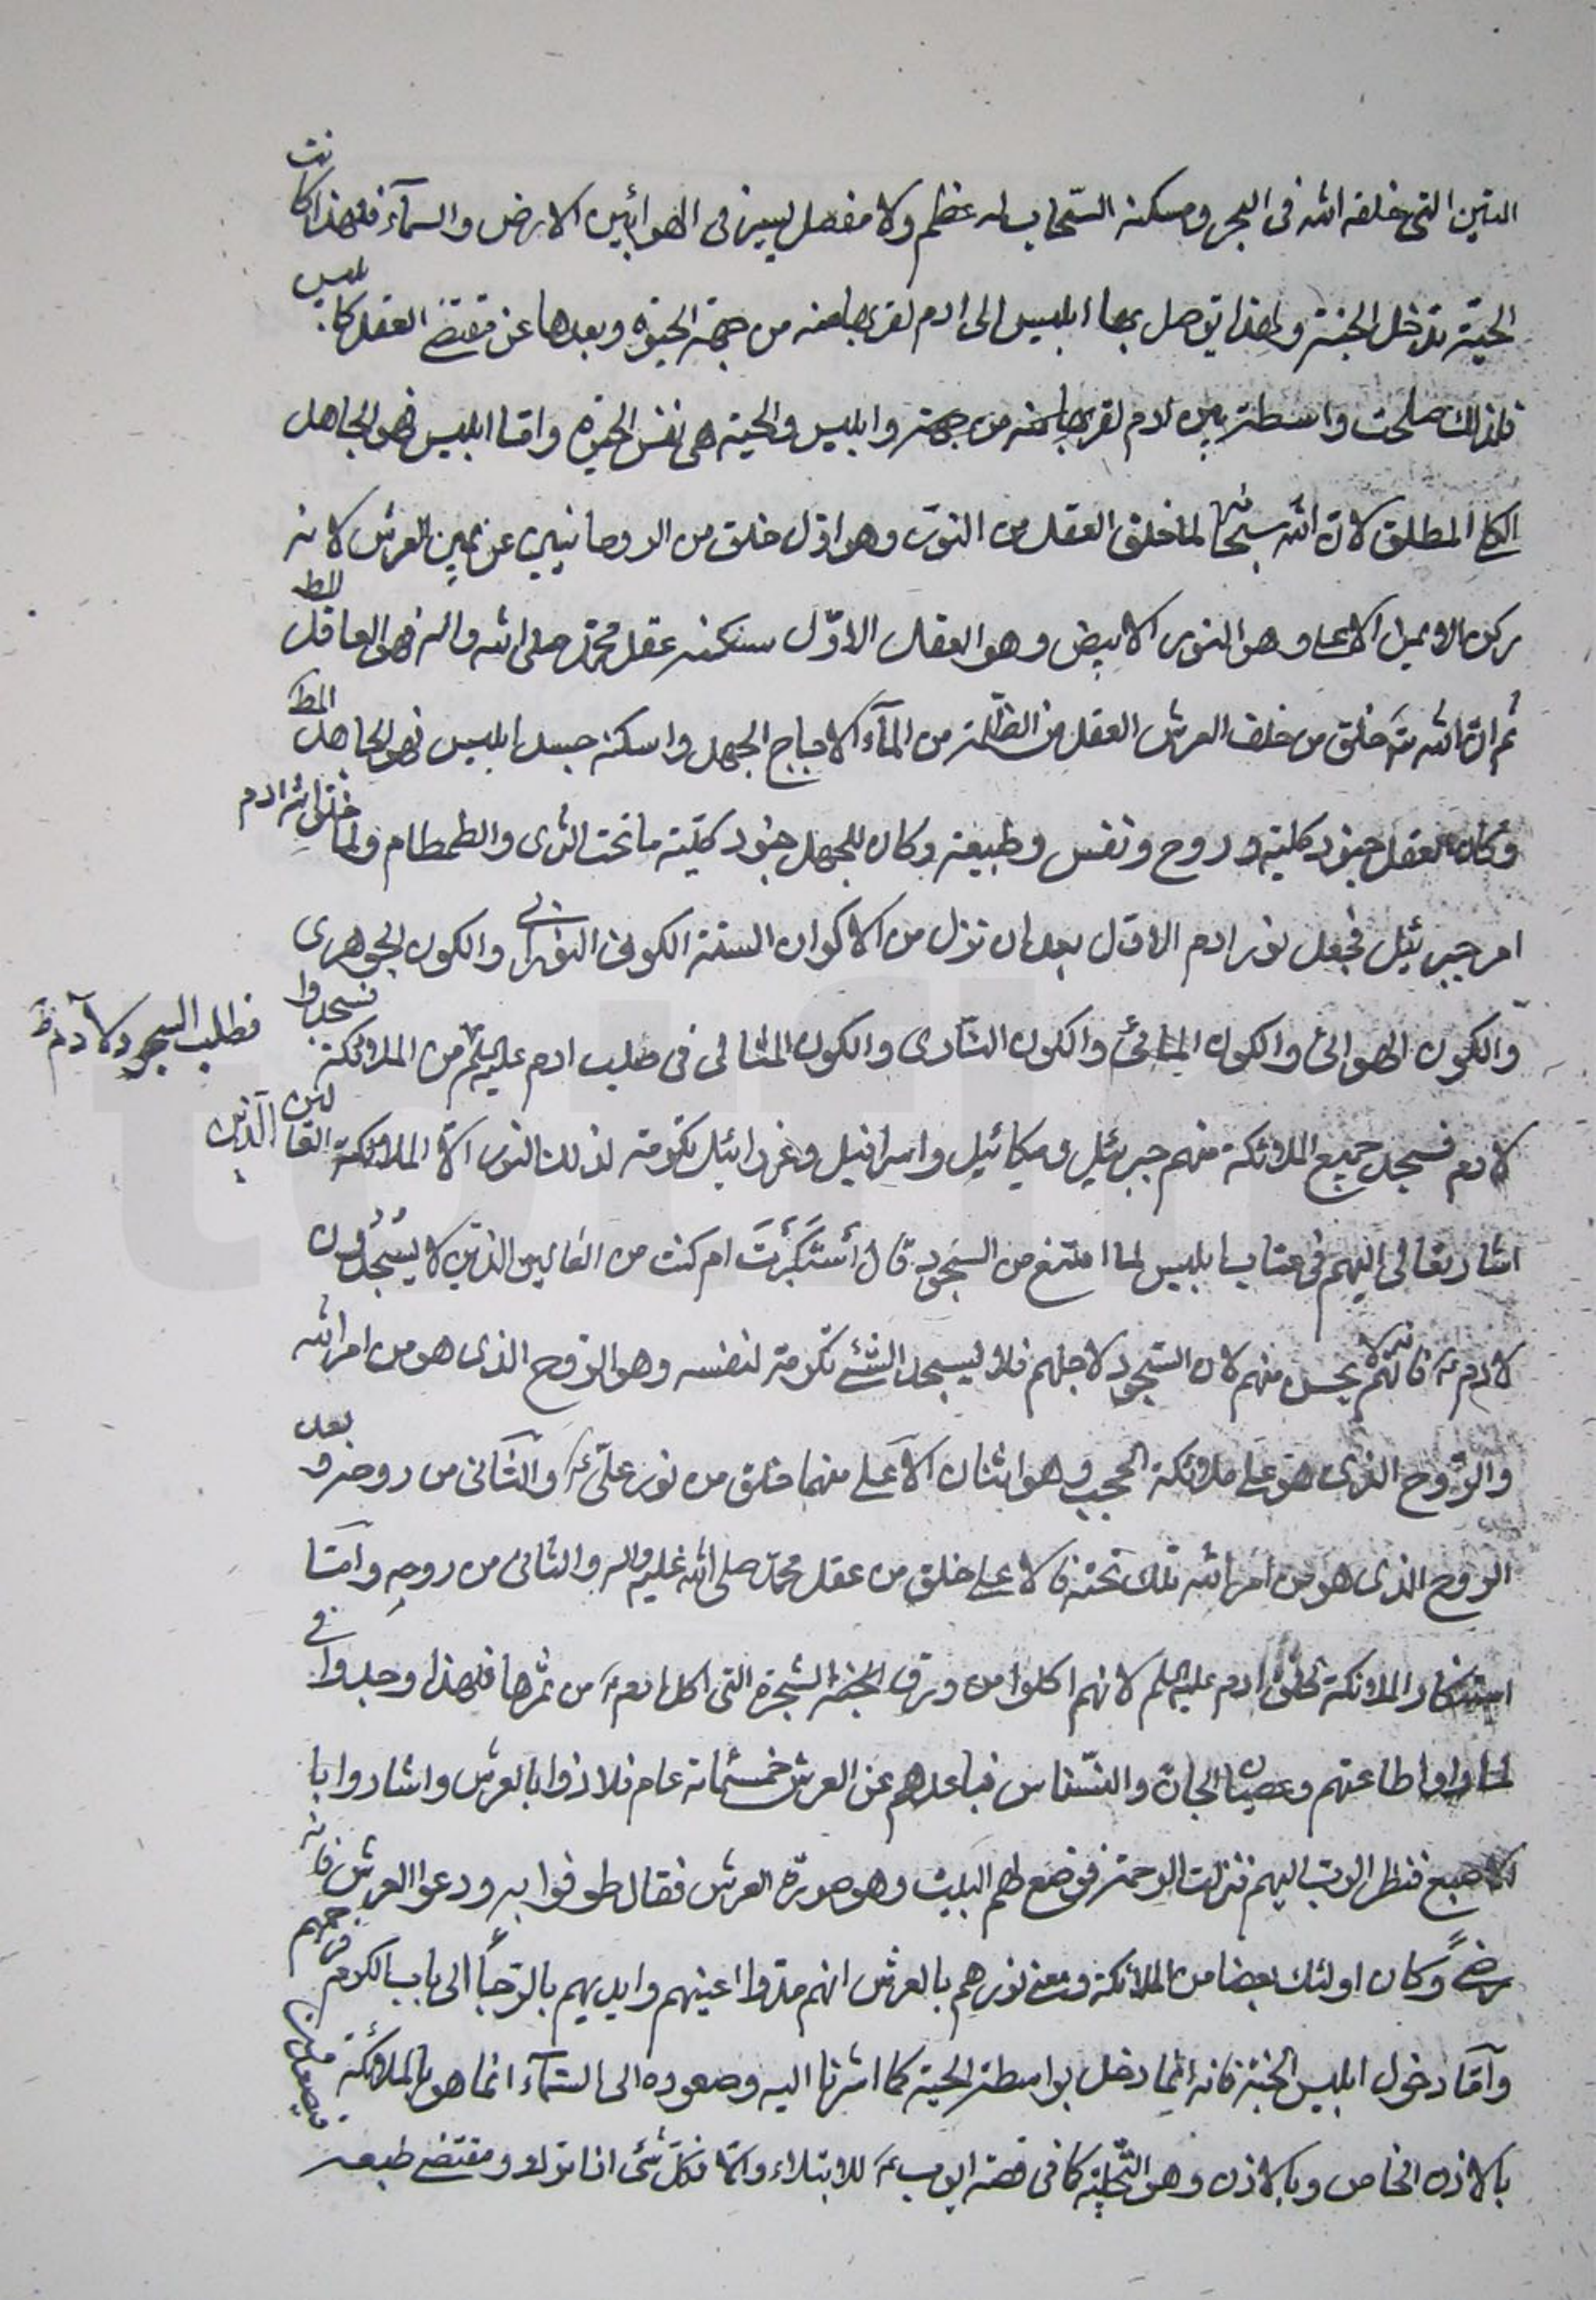 التنين التى خلقه الله فى البحر ومسكنه السّحاب له عظم ولا مفصل ليسير فى الهواء بين الارض والسمآء فلهذا كانت
الحيّة تدخل الجنة ولهذا توصل بها ابليس الى ادم لقربها منه من جهة الحيوة وبعدها عن مقتضى العقل كابليس
فلذلك صلحت واسطة بين ادم لقربها منه من جهة وابليس والحية هى نفس الحيوة وامّا ابليس فهو الجاهل
الكلى المطلق لان الله سبحانه لما خلق العقل من النور وهو اول خلق من الروحانيين عن يمين العرش لانه
ركن الايمن الاعلى وهو النور الابيض وهو العقل الاوّل سكنه عقل محمد صلى الله واله فهو العاقل المط
ثم ان الله تع خلق من خلف العرش العقل من الظلمة من المآء الاجاج الجهل واسكنه جسد ابليس فهو الجاهل المط
وكان للعقل جنود كلية وروح ونفس وطبيعة وكان للجهل جنود كليّة ما تحت الثرى والطمطام ولما خلق الله ادم
امر جبرئيل فجعل نور ادم الاول بعد ان نزل من الاكوان الستة الكون النورانى والكون الجوهرى
والكون الهوائى والكون المائى والكون النارى والكون المثالى فى صلب ادم عليه السلم من الملائكة فسجدوا
فطلب السجود لآدم ظ
لادم فسجد جميع الملائكة منهم جبرئيل وميكائيل واسرافيل وعزرائيل تكرمة لذلك النور الا الملائكة العالين الذين
اشار تعالى اليهم فى عتاب ابليس لما امتنع من السجود قال أستكبرت ام كنت من العالين الذين لا يسجدون
لادم ع فانهم لا يحسن منهم لان السّجود لاجلهم فلا ليسجد الشئ تكرمة لنفسه وهو الروح الذى هو من امر الله
والرّوح الذى هو على ملائكة الحجب وهو اثنان الاعلى منهما خلق من نور علىّ ع والثّانى من روحه وبعد
الروح الذى هو من امر الله تلك تحته فالاعلى خلق من عقل محمد صلى الله عليه واله والثانى من روحه وامّا
استنكار الملائكة لخلق ادم عليه السلم لانهم اكلوا من ورق الجنة الشجرة التى اكل ادم ع من ثمرها فلهذا وجدوا فى
لما راوا طاعتهم وعصيان الجان والنسناس فباعدهم عن العرش خمسمائة عام فلاذوا بالعرش واشاروا با
لاصبع فنظر الرب اليهم فنزلت الرحمة فوضع لهم البيت وهو صورة العرش فقال طوفوا به ودعوا العرش فانه
رضى وكان اولئك بعضا من الملائكة ومعنى نورهم بالعرش انهم مدوا اعينهم وايديهم بالرّجآ الى باب الكرم فرحمهم
وآمّا دخول ابليس الجنة فانه انما دخل بواسطة الحية كما اشرنا اليه وصعوده الى السّمآء انما هو بالملائكة فيصعد
بالاذن الخاص وبالاذن وهو التّخلية كما فى قصة ايوب ع للابتلاء وامّا فكل شئ اذا ترك ومقتضى طبعه